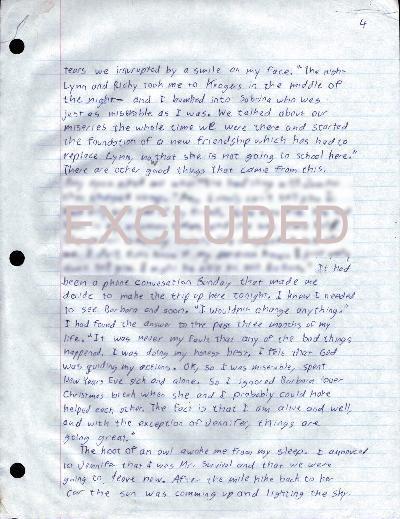 4
tears we inturupted by a smile on my face. "The night
Lynn and Richy took me to Krogers in the middle of
the night— and I bumbed into Sabrina who was
just as miserable as I was. We talked about our
miseries the whole time we were there and started
the foundation of a new friendship which has had to
replace Lynn, now that she is not going to school here."
There are other good things that came from this.
EXCLUDED
It had
been a phone conversation Sunday that made me
decide to make the trip up here tonight. I knew I needed
to see Barbara and soon. "I wouldn't change anything."
I had found the answer to the past three months of my
life. "It was never my fault that any of the bad things
happened. I was doing my honest best. I felt that God
was guiding my actions. OK, so I was miserable, spent
New Years Eve sick and alone. So I ignored Barbara over
Christmas break when she and I probably could have
helped each other. The fact is that I am alive and well,
and with the exception of Jennifer, things are
going great."
The hoot of an owl awoke me from my sleep. I announced
to Jennifer that I was Mr. Survival and that we were
going to leave now. After the mile hike back to her
car the sun was comming up and lighting the sky.